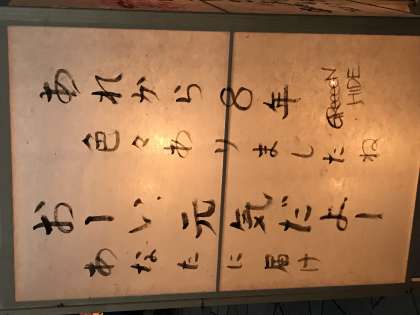 あれから8年
色々ありましたね
おーい、元気だよー
あなたに届け
GReeeeN
HIDE